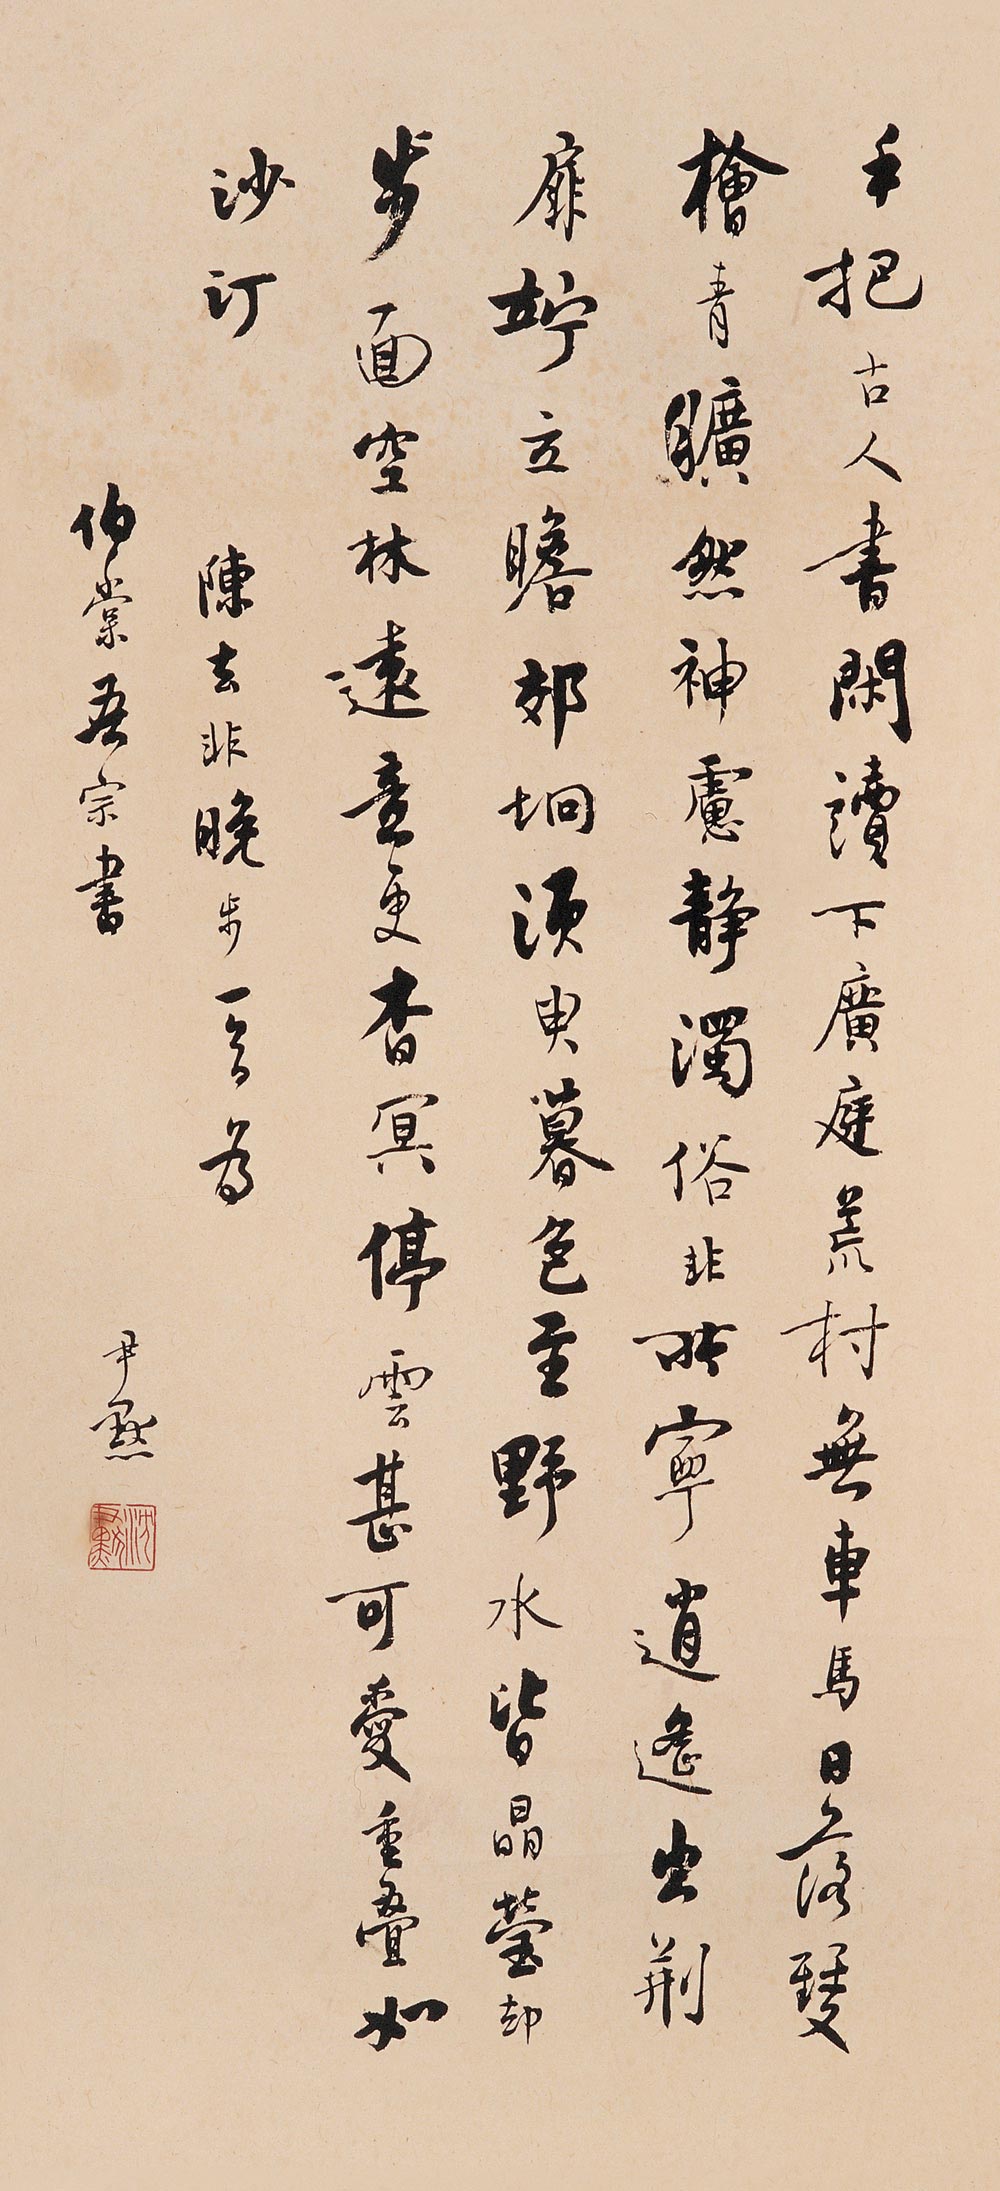 手把古人書閑讀下廣庭荒村無車馬日落雙
檜青曠然神慮静濁俗非所寧逍遙出荆
扉竚立瞻郊坰須臾暮色至野水皆晶瑩却
步面空林遠意更杳冥停雲甚可愛重疊如
沙汀
陳去非晚步一首為
伯棠吾宗書
尹默
沈